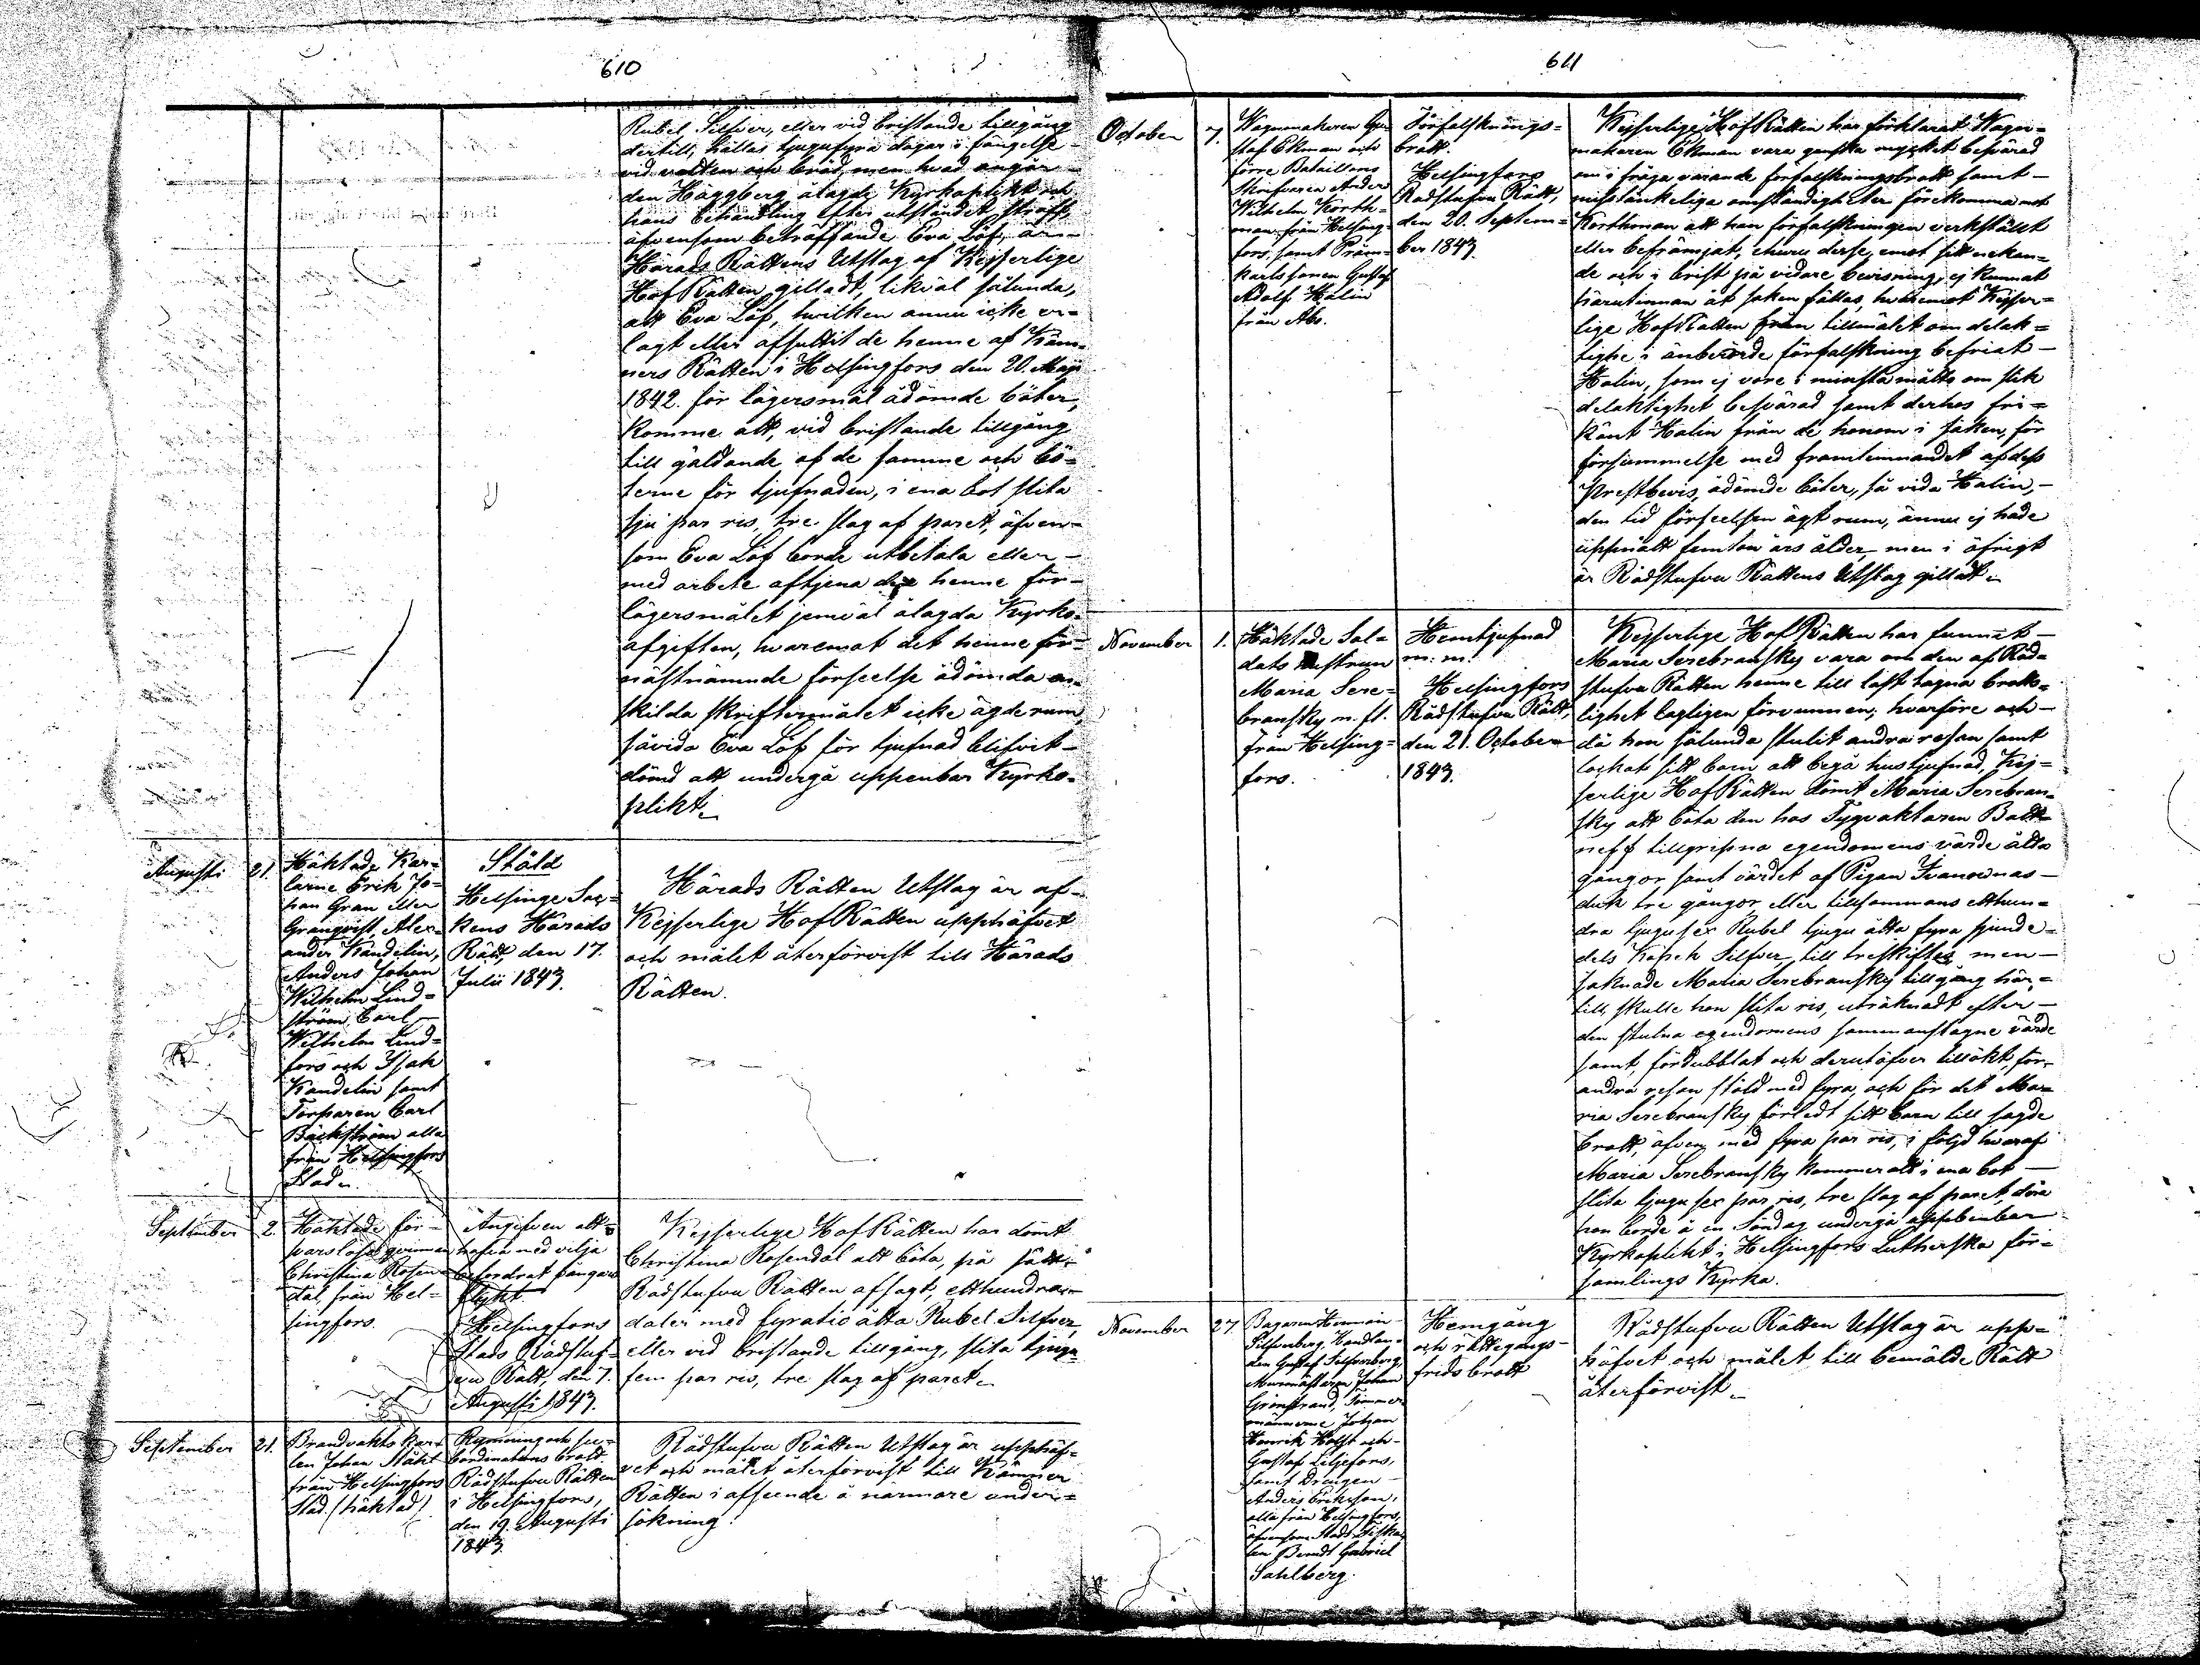 610
Rubel Silfver, eller vid bristande tillgång
dertill, hållas tjugufyra dagar i fängelse
vid vatten och bröd, men hvad angår
den Häggberg ålagde Kyrkoplikt och
hans behandling efter utståndet straff,
äfvensom beträffande Eva Löf, är
Härads Rättens Utslag af Kejserlige
Hof Rätten gilladt, likväl sålunda,
att Eva Löf, hwilken ännu icke er-
lagt eller afsuttit de henne af Käm-
ners Rätten i Helsingfors den 20. Maji
1842. för lägersmål ådömde böter,
komme att, vid bristande tillgång
till gäldande af de samme och bö-
terne för tjufnaden, i ena bot slita
sju par ris, tre slag af paret, äfven-
som Eva Löf borde utbetala eller
med arbete aftjena den henne för
lägersmålet jemväl ålagda Kyrko-
afgiften, hvaremot det henne för
nästnämnde förseelse ådömda en-
skilda skriftermålet icke ägde rum,
såvida Eva Löf för tjufnad blifvit
dömd att undergå uppenbar Kyrko-
plikt.
Augusti 21.
Häktade Kar-
larne Erik Jo-
han Gran eller
Granqvist, Alex-
ander Kandelin,
Anders Johan
Wilhelm Lind-
ström, Carl
Wilhelm Lind-
fors och Isak
Kandelin samt
Torparen Carl
Bäckström alla
från Helsingfors
Stad.
Stöld
Helsinge Soc-
kens Härads
Rätt, den 17.
Julii 1843.
Härads Rätten Utslag är af
Kejserlige Hof Rätten upphäfvet
och målet återförvist till Härads
Rätten.
September 2.
Häktade för-
svarslösa qvinnan
Christina Rosen-
dal, från Hel-
singfors.
Angifven att
hafva med vilja
befordrat fångars
flykt.
Helsingfors
Stads Rådstuf-
vu Rätt, den 7.
Augusti 1843.
Kejserlige Hof Rätten har dömt
Christina Rosendal att böta, på sätt
Rådstufvu Rätten afsagt, etthundra
daler med fyratio åtta Rubel Silfver,
eller vid bristande tillgång, slita tjugu
fem par ris, tre slag af paret.
September 21.
Brandvakts Kar-
len Johan Ståhl
från Helsingfors
Stad (häktad)
Rymning och su-
bordinations brott.
Rådstufvu Rätten
i Helsingfors,
den 19. Augusti
1843.
Rådstufvu Rätten Utslag är upphäf-
vet och målet återförvist till Kämner
Rätten i afseende å närmare under-
sökning.
611
October 7.
Wagnmakaren Gu-
staf Ekman och
förre Bataillons
Skrifvaren Anders
Wilhelm Korth-
man från Helsing-
fors, samt Präm-
karlssonen Gustaf
Adolf Halin
från Åbo.
Förfalsknings-
brott.
Helsingfors
Rådstufvu Rätt,
den 20. Septem-
ber 1843.
Kejserlige Hof Rätten har förklarat Wagn-
makaren Ekman vara ganska mycket besvärad
om i fråga varande förfalskningsbrott samt
misstänkeliga omständigheter förekomma mot
Korthman att han förfalskningen verkställt
eller befrämjat, ehuru desse, emot sitt nekan-
de och i brist på vidare bevisning, ej kunnat
härutinnan åt saken fällas, hvaremot Kejser-
lige Hof Rätten från tillmälet om delak-
tighet i änberörde förfalskning befriat
Halin, som ej vore i minsta måtto om slik
delaktighet besvärad samt derhos fri-
känt Halin från de honom i saken, för
försummelse med framlemnandet af dess
Prestbevis, ådömde böter, så vida Halin,
den tid förseelsen ägt rum, ännu ej hade
uppnått femton års ålder, men i öfrigt
är Rådstufvu Rättens Utslag gilladt.
November 1.
Häktade Sol-
dats hustrun
Maria Sere-
bransky m. fl.
från Helsing-
fors.
Hemtjufnad
m. m.
Helsingfors
Rådstufvu Rätt,
den 21. October
1843.
Kejserlige Hof Rätten har funnit
Maria Serebransky vara om den af Råd-
stufvu Rätten henne till last tagna brotts-
lighet lagligen förvunnen; hvarföre och
då hon sålunda stulit andra resan samt
lockat sitt barn att begå hustjufnad, Kej-
serlige Hof Rätten dömt Maria Serebran-
sky att böta den hos Tygvaktaren Batt-
neff tillgripna egendomens värde åtta
gångor samt värdet af Pigan Ivanownas
duk tre gångor eller tillsammans etthun-
dra tjugusex Rubel tjugu åtta fyra sjunde-
dels Kopek Silfver, till treskiftes men
saknade Maria Serebransky tillgång här-
till, skulle hon slita ris, uträknadt efter
den stulna egendomens sammanslagne värde
samt, fördubblat och derutöfver tillökt för
andra resan stöld med fyra, och för det Ma-
ria Serebransky förledt sitt barn till sagde
brott, äfven med fyra par ris, i följd hwaraf
Maria Serebransky kommer att i ena bot
slita tjugusex par ris, tre slag af paret, dera
hon borde å en Söndag undergå uppenbar
Kyrkoplikt i Helsingfors Lutherska för-
samlings Kyrka.
November 27.
Bagaren Herman
Silfverberg, Handlan-
den Gustaf Silfverberg,
Murmästaren Johan
Grönstrand, Timmer
männerne Johan
Henrik Holst och
Gustaf Liljefors,
samt Drängen
Anders Eriksson,
alla från Helsingfors,
äfvensom Stads Fiska-
len Berndt Gabriel
Sahlberg.
Hemgång
och rättegångs-
frids brott
Rådstufvu Rätten Utslag är upp-
häfvet och målet till bemälde Rätt
återförvist.